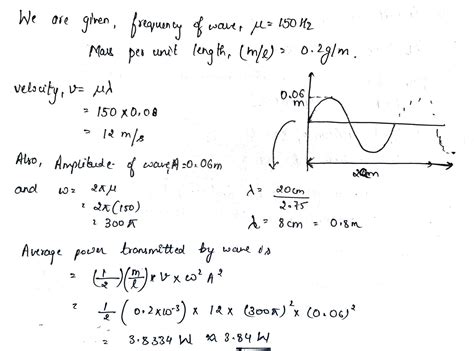 We are given, frequency of wave, μ = 150 Hz
Mass per unit length, (m/l) = 0.2g/m.
velocity, v = μλ
= 150 x 0.08
= 12 m/s
0.06
m
Also, Amplitude of wave, A = 0.06m
and ω = 2πμ
= 2π(150)
= 300π
20cm
λ = 20cm / 2.75
λ = 8cm = 0.8m
Average power transmitted by wave is
= (1/2)(m/l) x v x ω² A²
= 1/2 (0.2x10⁻³) x 12 x (300π)² x (0.06)²
= 3.8334 W ≈ 3.84 W